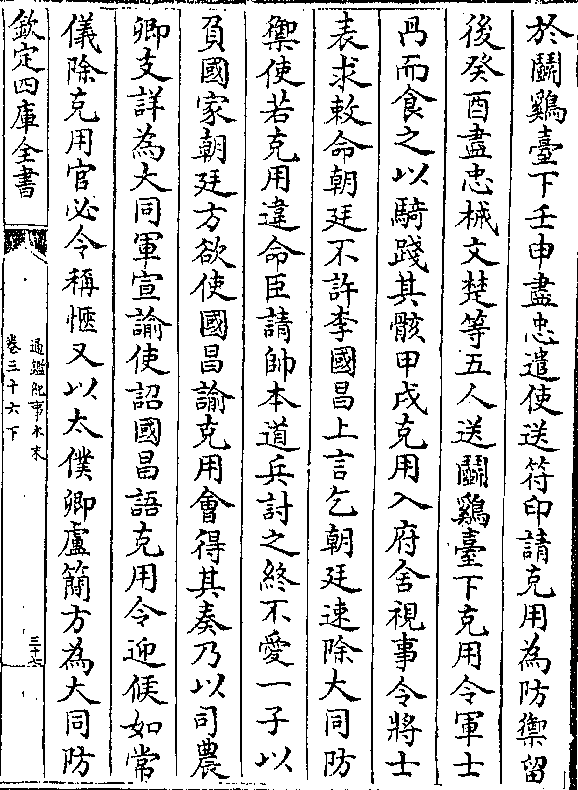 於鬭雞臺下壬申盡忠遣使送符印請克用為防禦留
後癸酉盡忠械文楚等五人送鬭雞臺下克用令軍士
冎而食之以騎踐其骸甲戌克用入府舍視事令將士
表求敕命朝廷不許李國昌上言乞朝廷速除大同防
禦使若克用違命臣請帥本道兵討之終不愛一子以
負國家朝廷方欲使國昌諭克用會得其奏乃以司農
卿支詳為大同軍宣諭使詔國昌語克用令迎候如常
儀除克用官必令稱愜又以太僕卿盧簡方為大同防
欽定四庫全書
通鑑紀事本末
卷三十六下
三十六